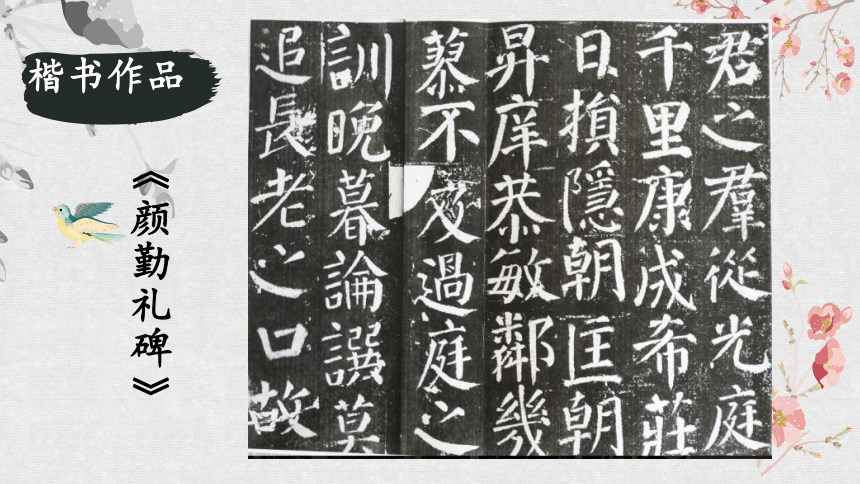 楷书作品
《颜勤礼碑》
君之羣從光庭
千里康成希莊
日損隱朝匡朝
昇庠恭敏鄰幾
蓼不及過庭之
訓晚暮論譔莫
追長老之口故